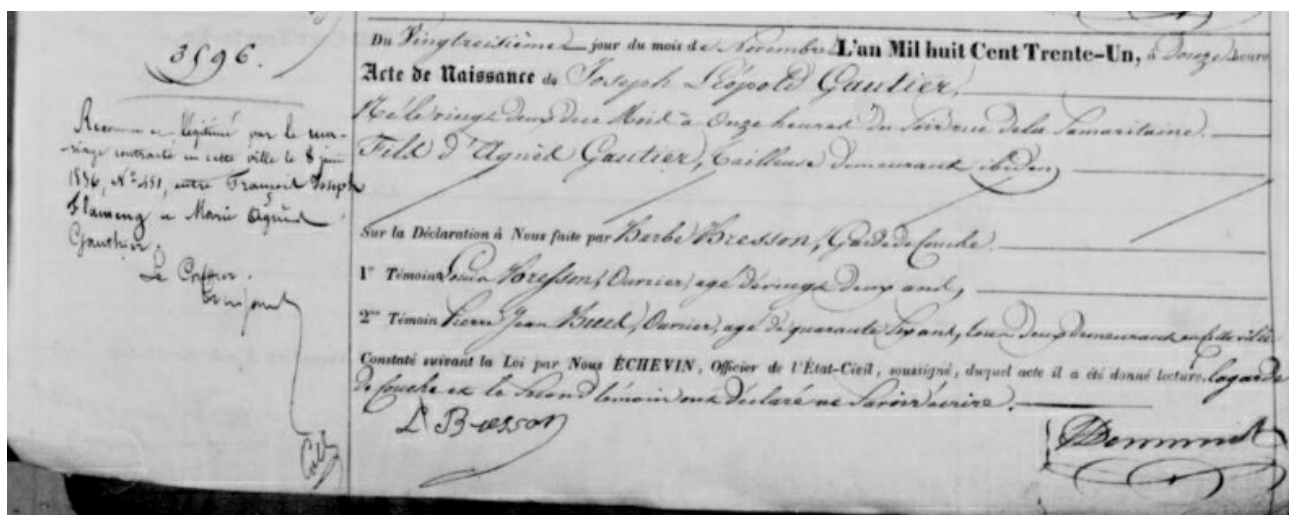 3596.
Reconnu et légitimé par le mar-
riage contracté en cette ville le 8 juin
1836, N° 451, entre François Joseph
Flameng et Marie Agnès
Gauthier.
Le Greffier
Du Vingttroisième jour du mois de Novembre L'an Mil huit Cent Trente-Un, à Douze heures
Acte de Naissance de Joseph Léopold Gautier,
Né le vingt deux du Mois à Onze heures du Soir rue de la Samaritaine.
Fils d'Agnès Gautier, Tailleuse demeurant ibidem
Sur la Déclaration à Nous faite par Barbe Bresson, Garde de Couche.
1er Témoin Louis Bresson, Ouvrier, agé de vingt deux ans,
2me Témoin Pierre Jean Buel, Ouvrier, agé de quarante Six ans, tous deux demeurant en cette ville
Constaté suivant la Loi par Nous ÉCHEVIN, Officier de l'État-Civil, soussigné, duquel acte il a été donné lecture, la garde
de Couche et le Second témoin ont déclaré ne Savoir écrire.
L Bresson